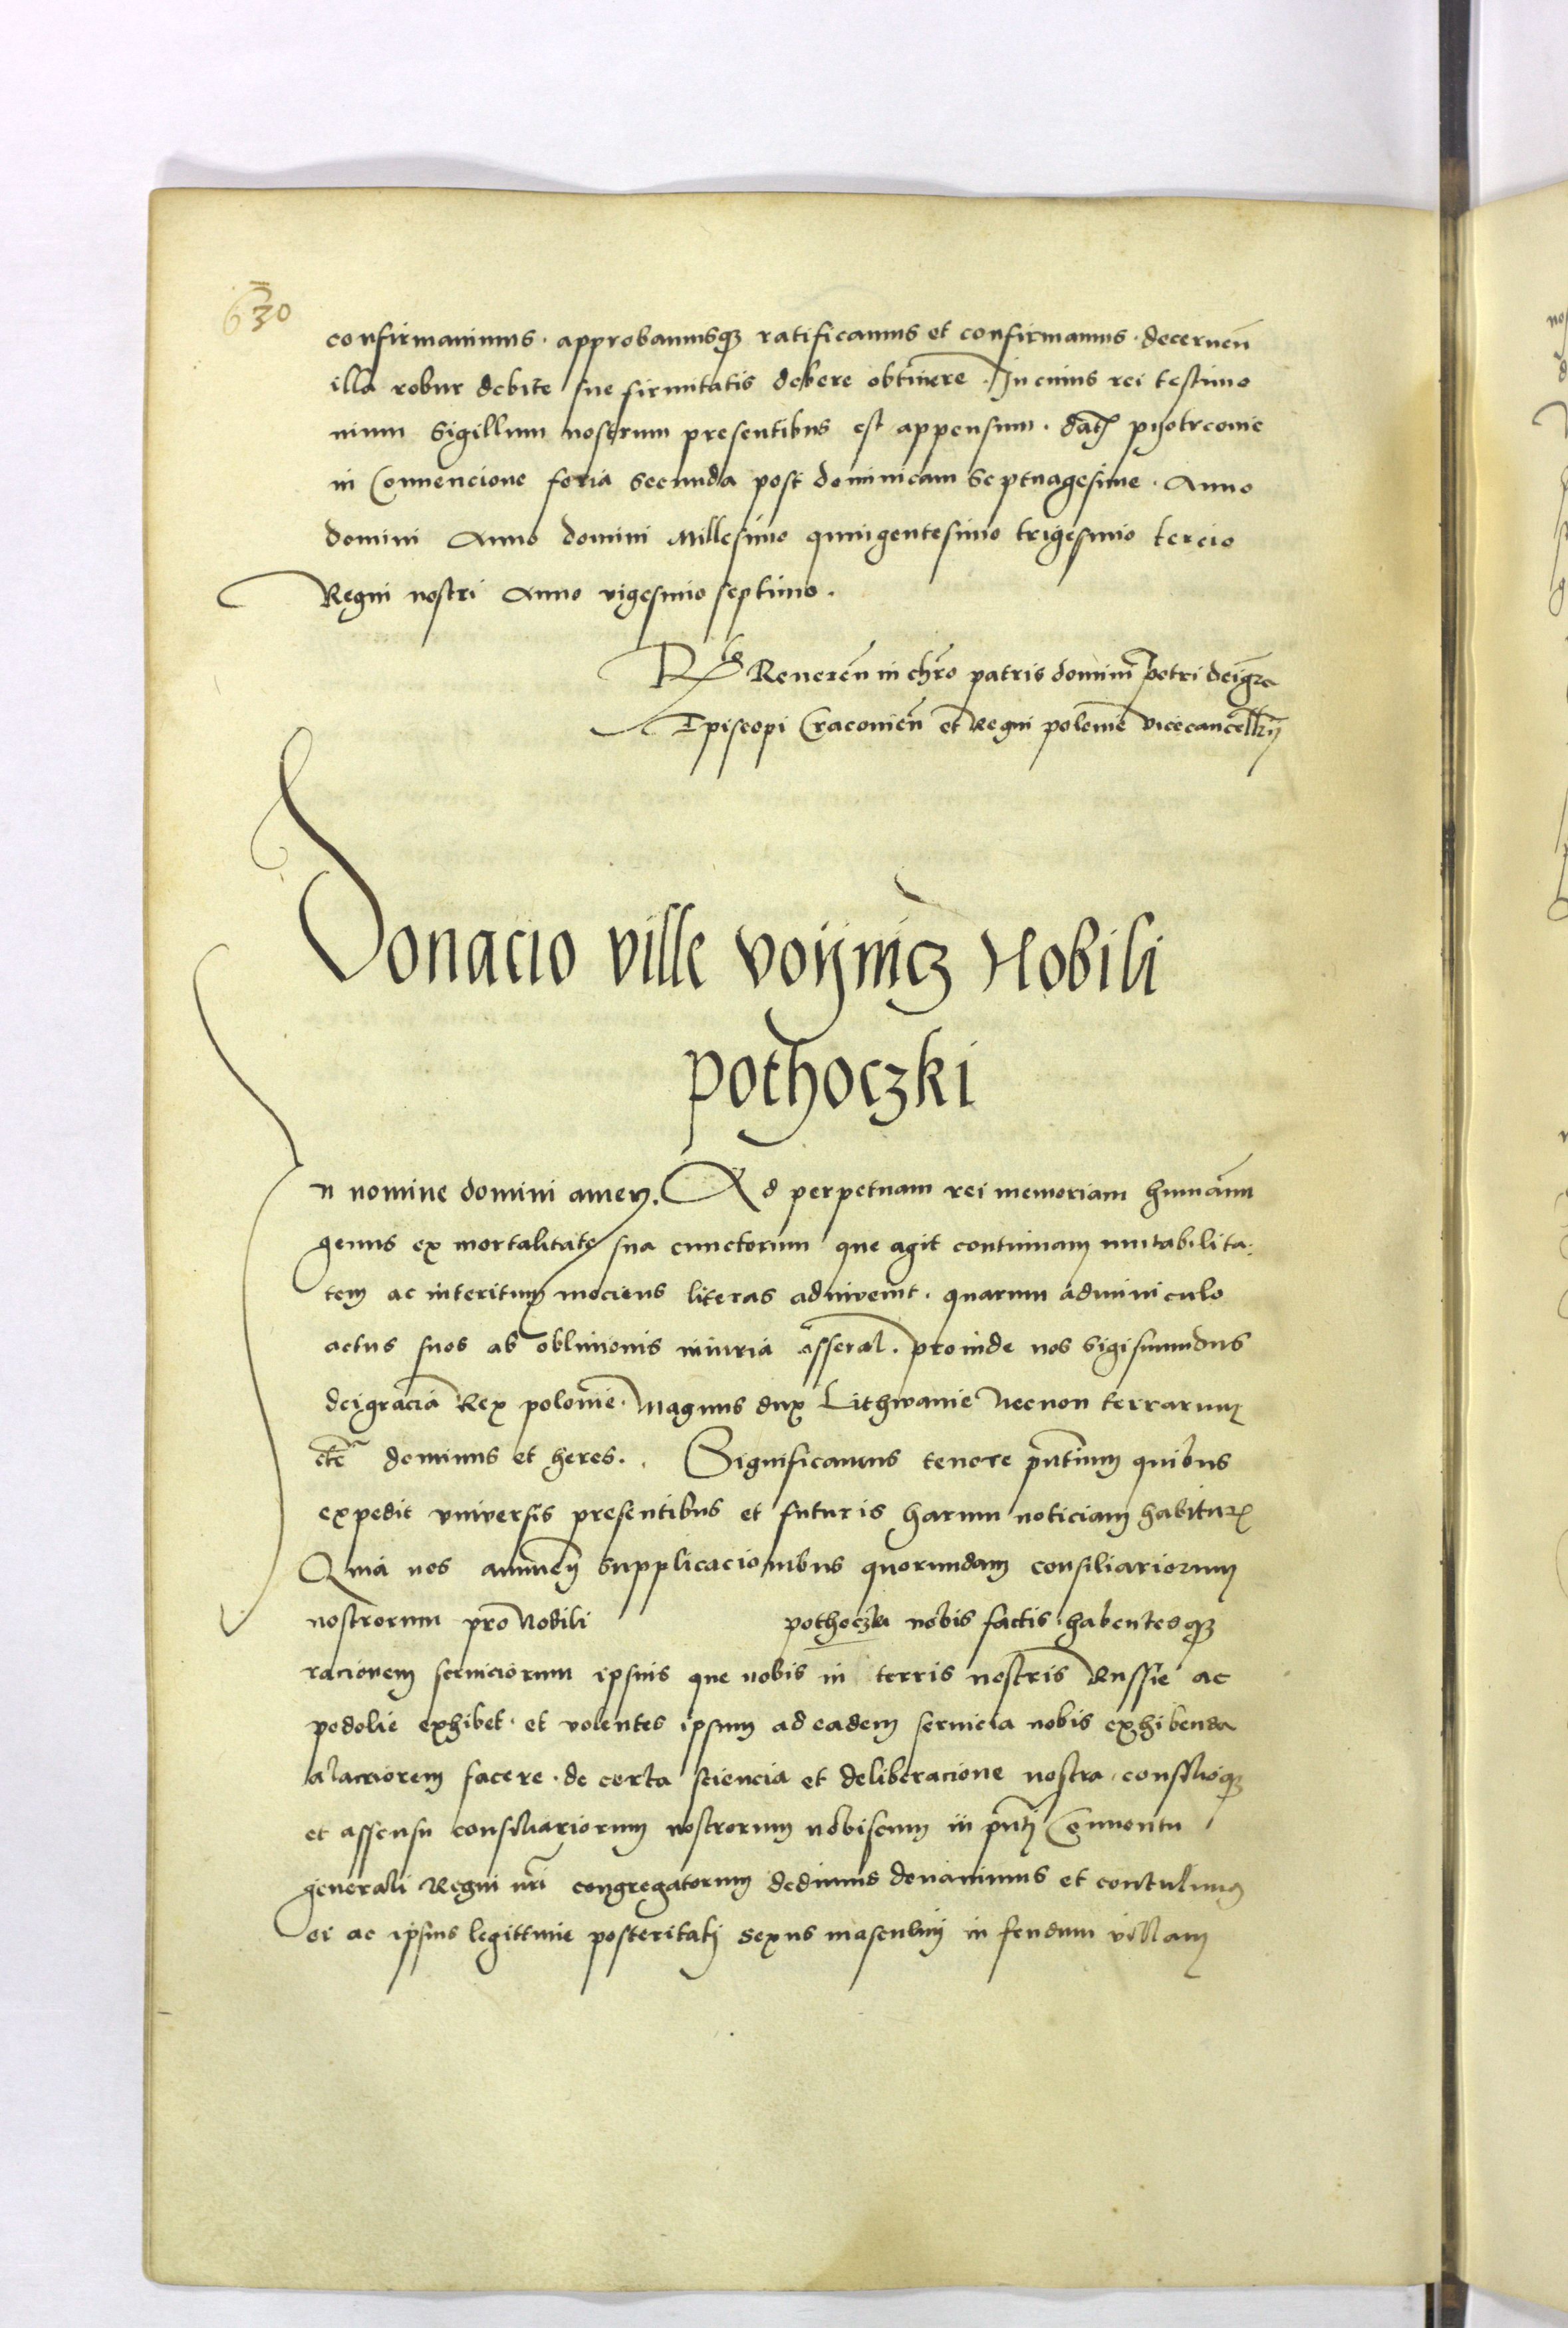 630
confirmavimus. approbavimusq3 ratificamus et confirmamus. decernen̄
illa robur debite sue firmitatis debere obtinere. In cuius rei testimo
nium Sigillum nostrum presentibus est appensum. dat̄ pyotrcovie
in Convencione feria secunda post dominicam Septuagesime. Anno
domini Anno domini Millesimo quingentesimo trigesimo tercio
Regni nostri Anno vigesimo septimo.
Rlo Reveren̄ in chro patris domini petri dei gra
Episcopi Cracovien̄ et Regni polonie vicecancellrij
Donacio ville voijnicz Nobili
pothoczki
n nomine domini amen. Ad perpetuam rei memoriam humanum
genus ex mortalitate sua cunctorum que agit continuam mutabilita
tem ac interitum meciens literas adinvenit. quarum adminiculo
actus suos ab oblivionis iniuria asserat. proinde nos Sigismundus
dei gracia Rex polonie. Magnus dux Lithwanie Necnon terrarum
etc dominus et heres. Significamus tenore pn̄tium quibus
expedit universis presentibus et futuris harum noticiam habitur̄
Quia nos supplicacionibus quorundam consiliariorum
nostrorum pro Nobili pothoczki nobis factis. habentesq3
racionem serviciorum ipsius que nobis in terris nostris Russie ac
podolie exhibet. et volentes ipsum ad eadem servicia nobis exhibenda
alacriorem facere. de certa sciencia et deliberacione nostra. consilioq3
et assensu consiliariorum nostrorum nobiscum in pn̄ti Conventu
generali Regni nr̄i congregatorum dedimus donavimus et contulimus
ei ac ipsius legittime posteritati sexus masculini in feudum villam